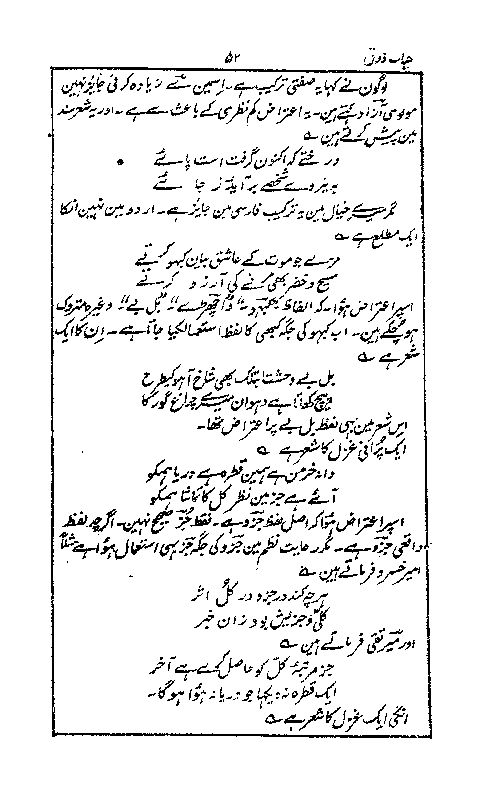 حیات ذوق ۵۲
لوگون نے کہا یہ صفتی ترکیب ہے۔ اسمین ئے زیادہ کرنی جایز نہین
مولوی آزاد کہتے ہین۔ یہ اعتراض کم نظری کے باعث سے ہے۔ اور یہ شعر سند
مین پیش کرتے ہین ؎
درختے کہ اکنون گرفت است پائے
بہ نیروے شخصے بر آید ز جائے
مگر میرے خیال مین یہ ترکیب فارسی مین جایز ہے۔ اردو مین نہین انکا
ایک مطلع ہے ؎
مزے جو موت کے عاشق بیان کبھو کرتے
مسیح و خضر بھی مرنے کی آرزو کرتے
اسپر اعتراض ہؤا۔ کہ الفاظ کبھو۔
ہو چکے ہین۔ اب کبھو کی جگہ کبھی کا لفظ استعمال کیا جاتا ہے۔ ان کا ایک
شعر ہے ؎
بل بے وحشت تلک بھی شاخ آہو کیطرح
پیچ کھاتا ہے دہوان میرے چراغ گور کا
اس شعر مین بھی لفظ بل بے پر اعتراض تھا۔
ایک پُرانی غزل کا شعر ہے ؎
دانہ خرمن ہے ہمین قطرہ ہے دریا ہمکو
آئے ہے جز مین نظر کل کا تماشا ہمکو
اسپر اعتراض ہؤا کہ اصل لفظ جزو ہے۔ فقط جُز صحیح نہین۔ اگرچہ لفظ
واقعی جزو ہے۔ مگر رعایت نظم مین جزو کی جگہ جز بھی استعمال ہؤا ہے مثلاً
امیر خسرو فرماتے ہین ؎
ہرچہ کند در جزو در کُل اثر
کلی و جزیش بود زان خبر
اور میر تقی فرماتے ہین ؎
جز مرتبۂ کل کو حاصل کرے ہے آخر
ایک قطرہ نہ دیکھا جو دریا نہ ہؤا ہوگا۔
انکی ایک غزل کا شعر ہے ؎